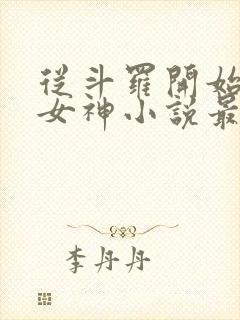 從斗羅開始
女神小說最
李丹丹